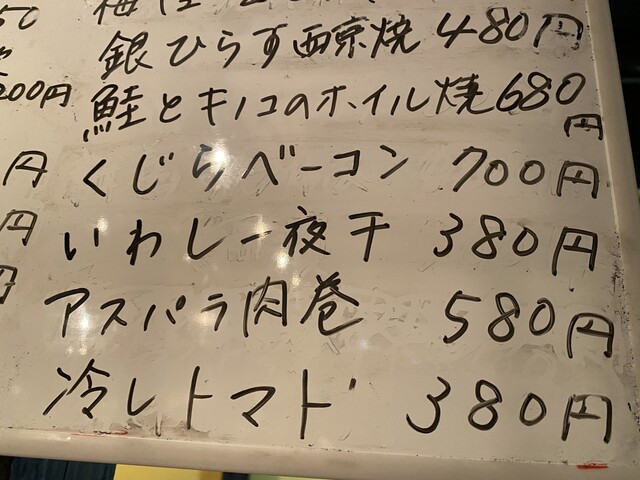 銀ひらす西京焼 480円
鮭とキノコのホイル焼 680円
くじらベーコン 700円
いわし一夜干 380円
アスパラ肉巻 580円
冷しトマト 380円
50
200円
円
円
円